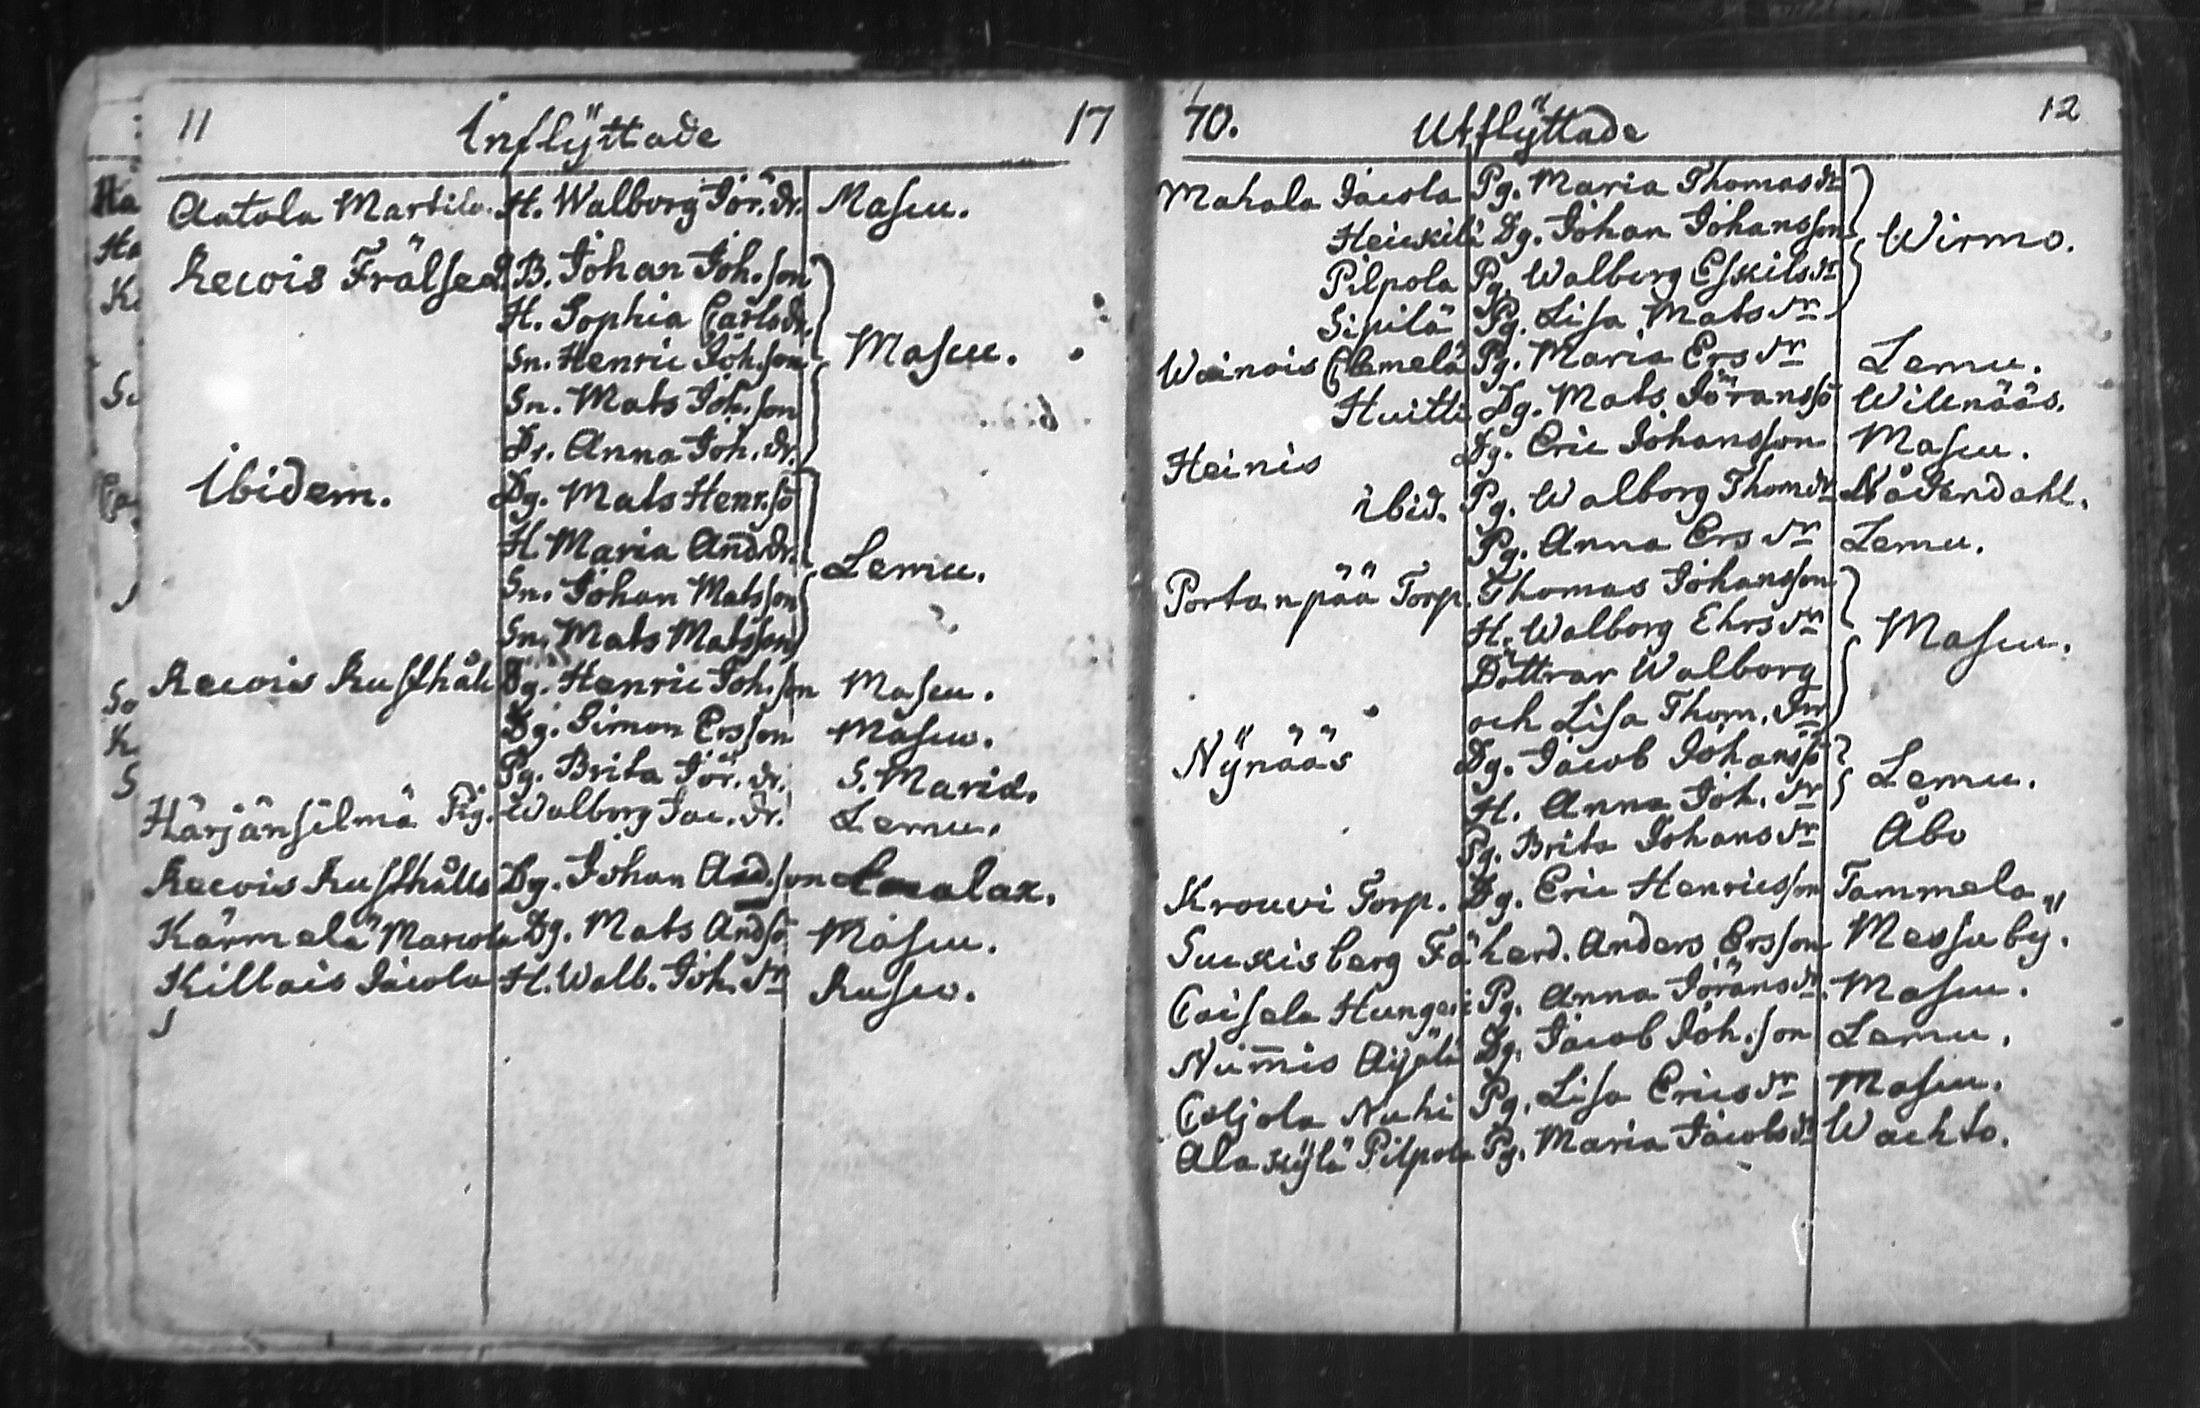 11 Inflÿttade 17
Aatola Martila. H. Walborg Jör.dr. Mascu.
Recois Frälsed B. Johan Joh.son
H. Sophia Carlsdr.
Sn. Henric Joh.son Mascu.
Sn. Mats Joh.son
Dr. Anna Joh.dr.
Ibidem. Dg. Mats Henr.sö
H. Maria And.dr.
Sn. Johan Matsson Lemu.
Sn. Mats Matsson
Recois Rusthåll Dg. Henric Joh.son Mascu.
Dg. Simon Ersson Mascu.
Pg. Brita Jör.dr. S. Mariæ.
Härjänsilmä Pig. Walborg Jac.dr. Lemu.
Recois Rusthålls Dg. Johan And.son alax.
Kärmelä Marcola Dg. Mats Andsö Mascu.
Killais Jacola H. Walb. Joh.dr Rusco.
70. Utflÿttade 12
Mahala Jacola Pg. Maria Thomasdr
Heickilä Dg. Johan Johansson Wirmo.
Pilpola Pg. Walberg Eskilsdr
Sipilä Pg. Lisa Matsdr
Wainois Clemelä Pg. Maria Ersdr Lemu.
Huitti Dg. Mats Jöranssö Willnääs.
Heinis Dg. Eric Johansson Mascu.
ibid. Pg. Walborg Thomdr Nådendahl.
Pg. Anna Ersdr Lemu.
Portanpää Torp. Thomas Johansson
H. Walborg Ehrsdr Mascu.
Döttrar Walborg
och Lisa Thom.drr
Nÿnääs Dg. Jacob Johanssö Lemu.
H. Anna Joh.dr
Pg. Brita Johansdr Åbo
Krouvi Torp. Dg. Eric Henricsson Tammela
Suckisberg Fäherd. Anders Ersson Messubÿ.
Caisela Hungeri Pg. Anna Jöransdr. Mascu.
Num̅is Aijälä Dg. Jacob Joh.son Lemu.
Coljola Nuhi Pg. Lisa Ericsdr Mascu.
Alakÿlä Pilpola Pg. Maria Jacobsdr Wachto.